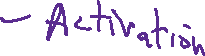 - Activation